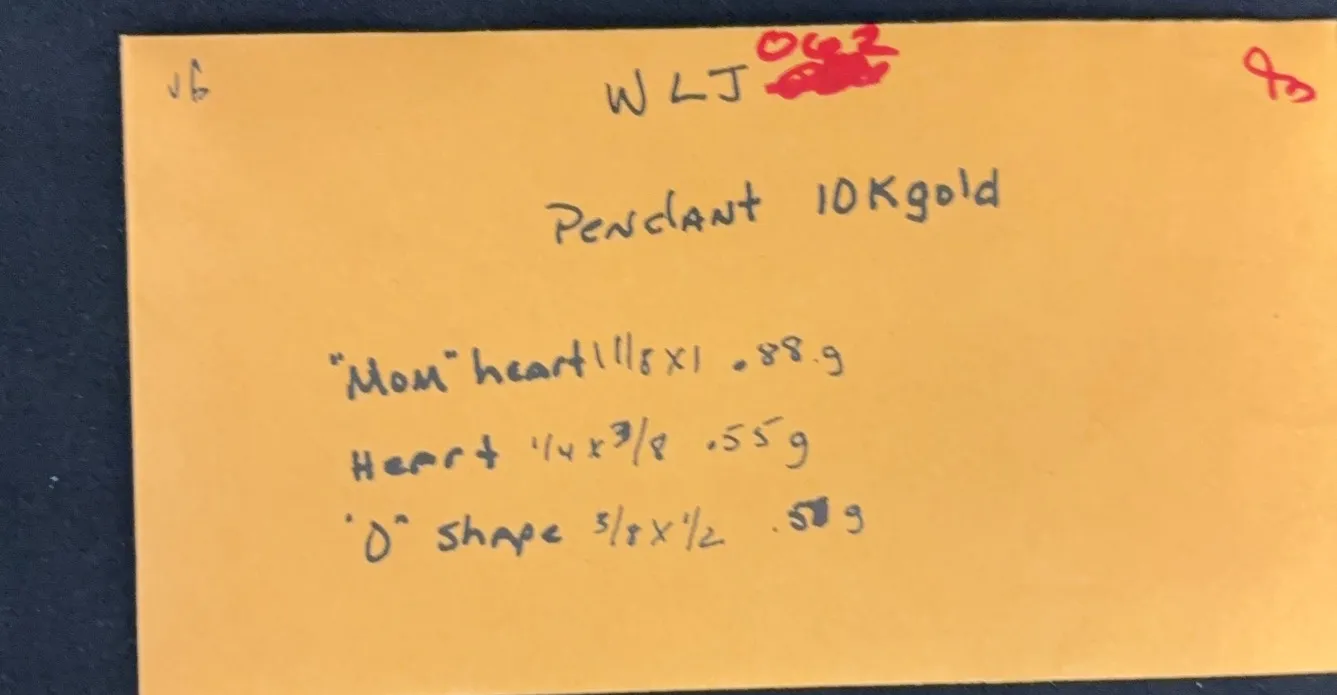 WLJ 062
Pendant 10K gold
"Mom" heart 1 1/8 x 1 .88.g
Heart 1/4 x 3/8 .55g
"O" shape 5/8 x 1/2 g